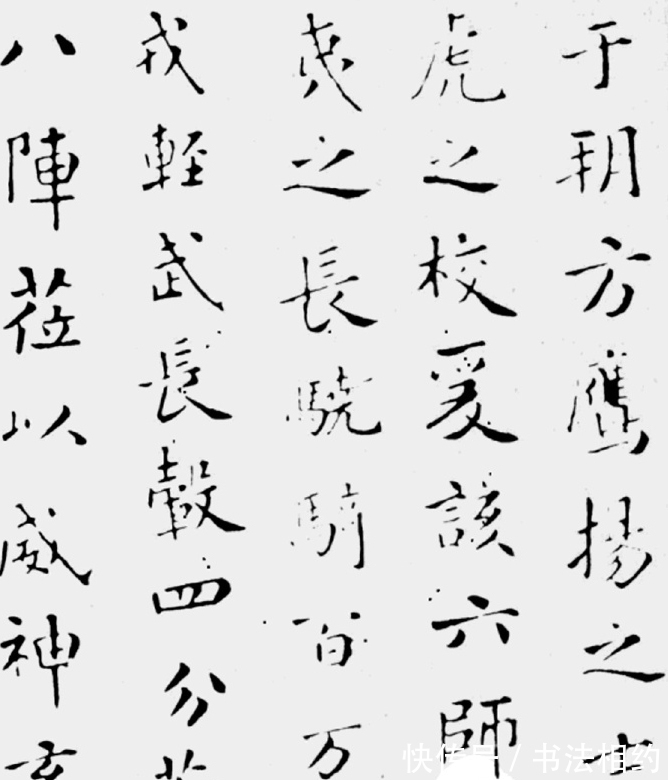 于朔方鷹揚之
虎之校爰該六師
之長驍騎百万
戎輕武長轂四分
八陣莅以威神玄
快传号 / 书法相约